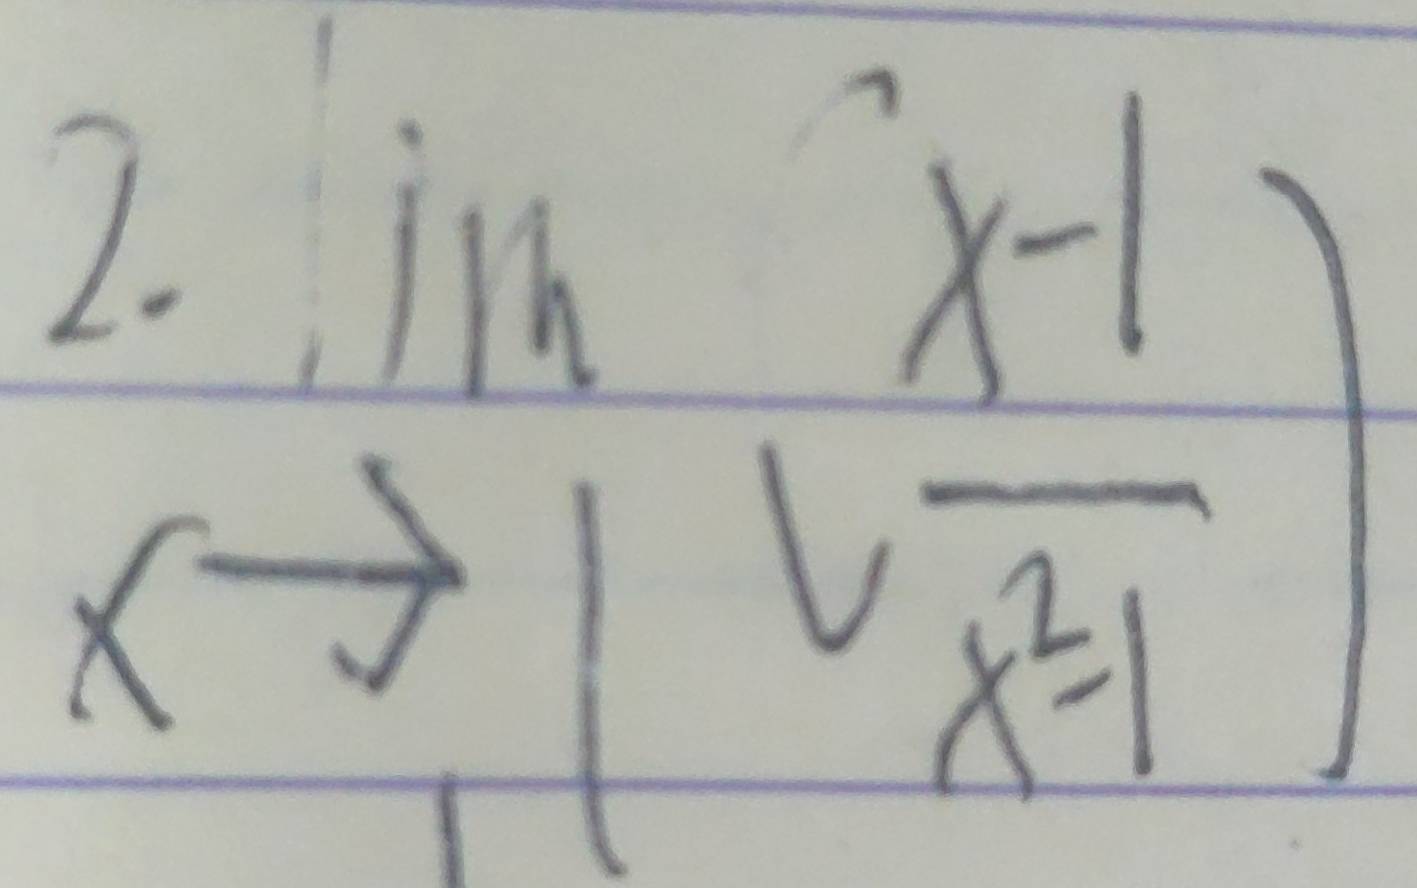 2. lim (x-1
x→1 x²-1)